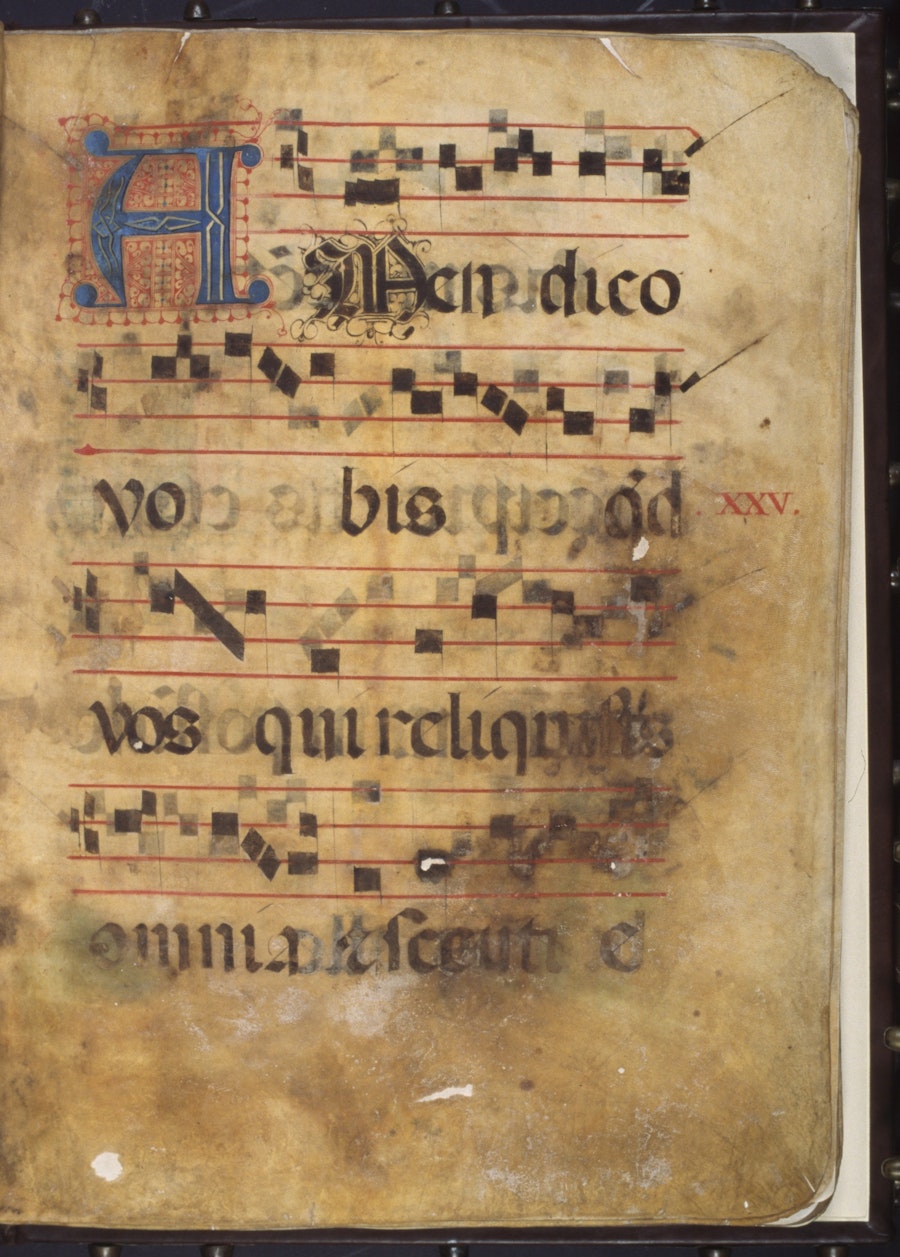 AMen dico
vo bis qd̄
XXV.
vos qui reliquistis
omnia & secuti e